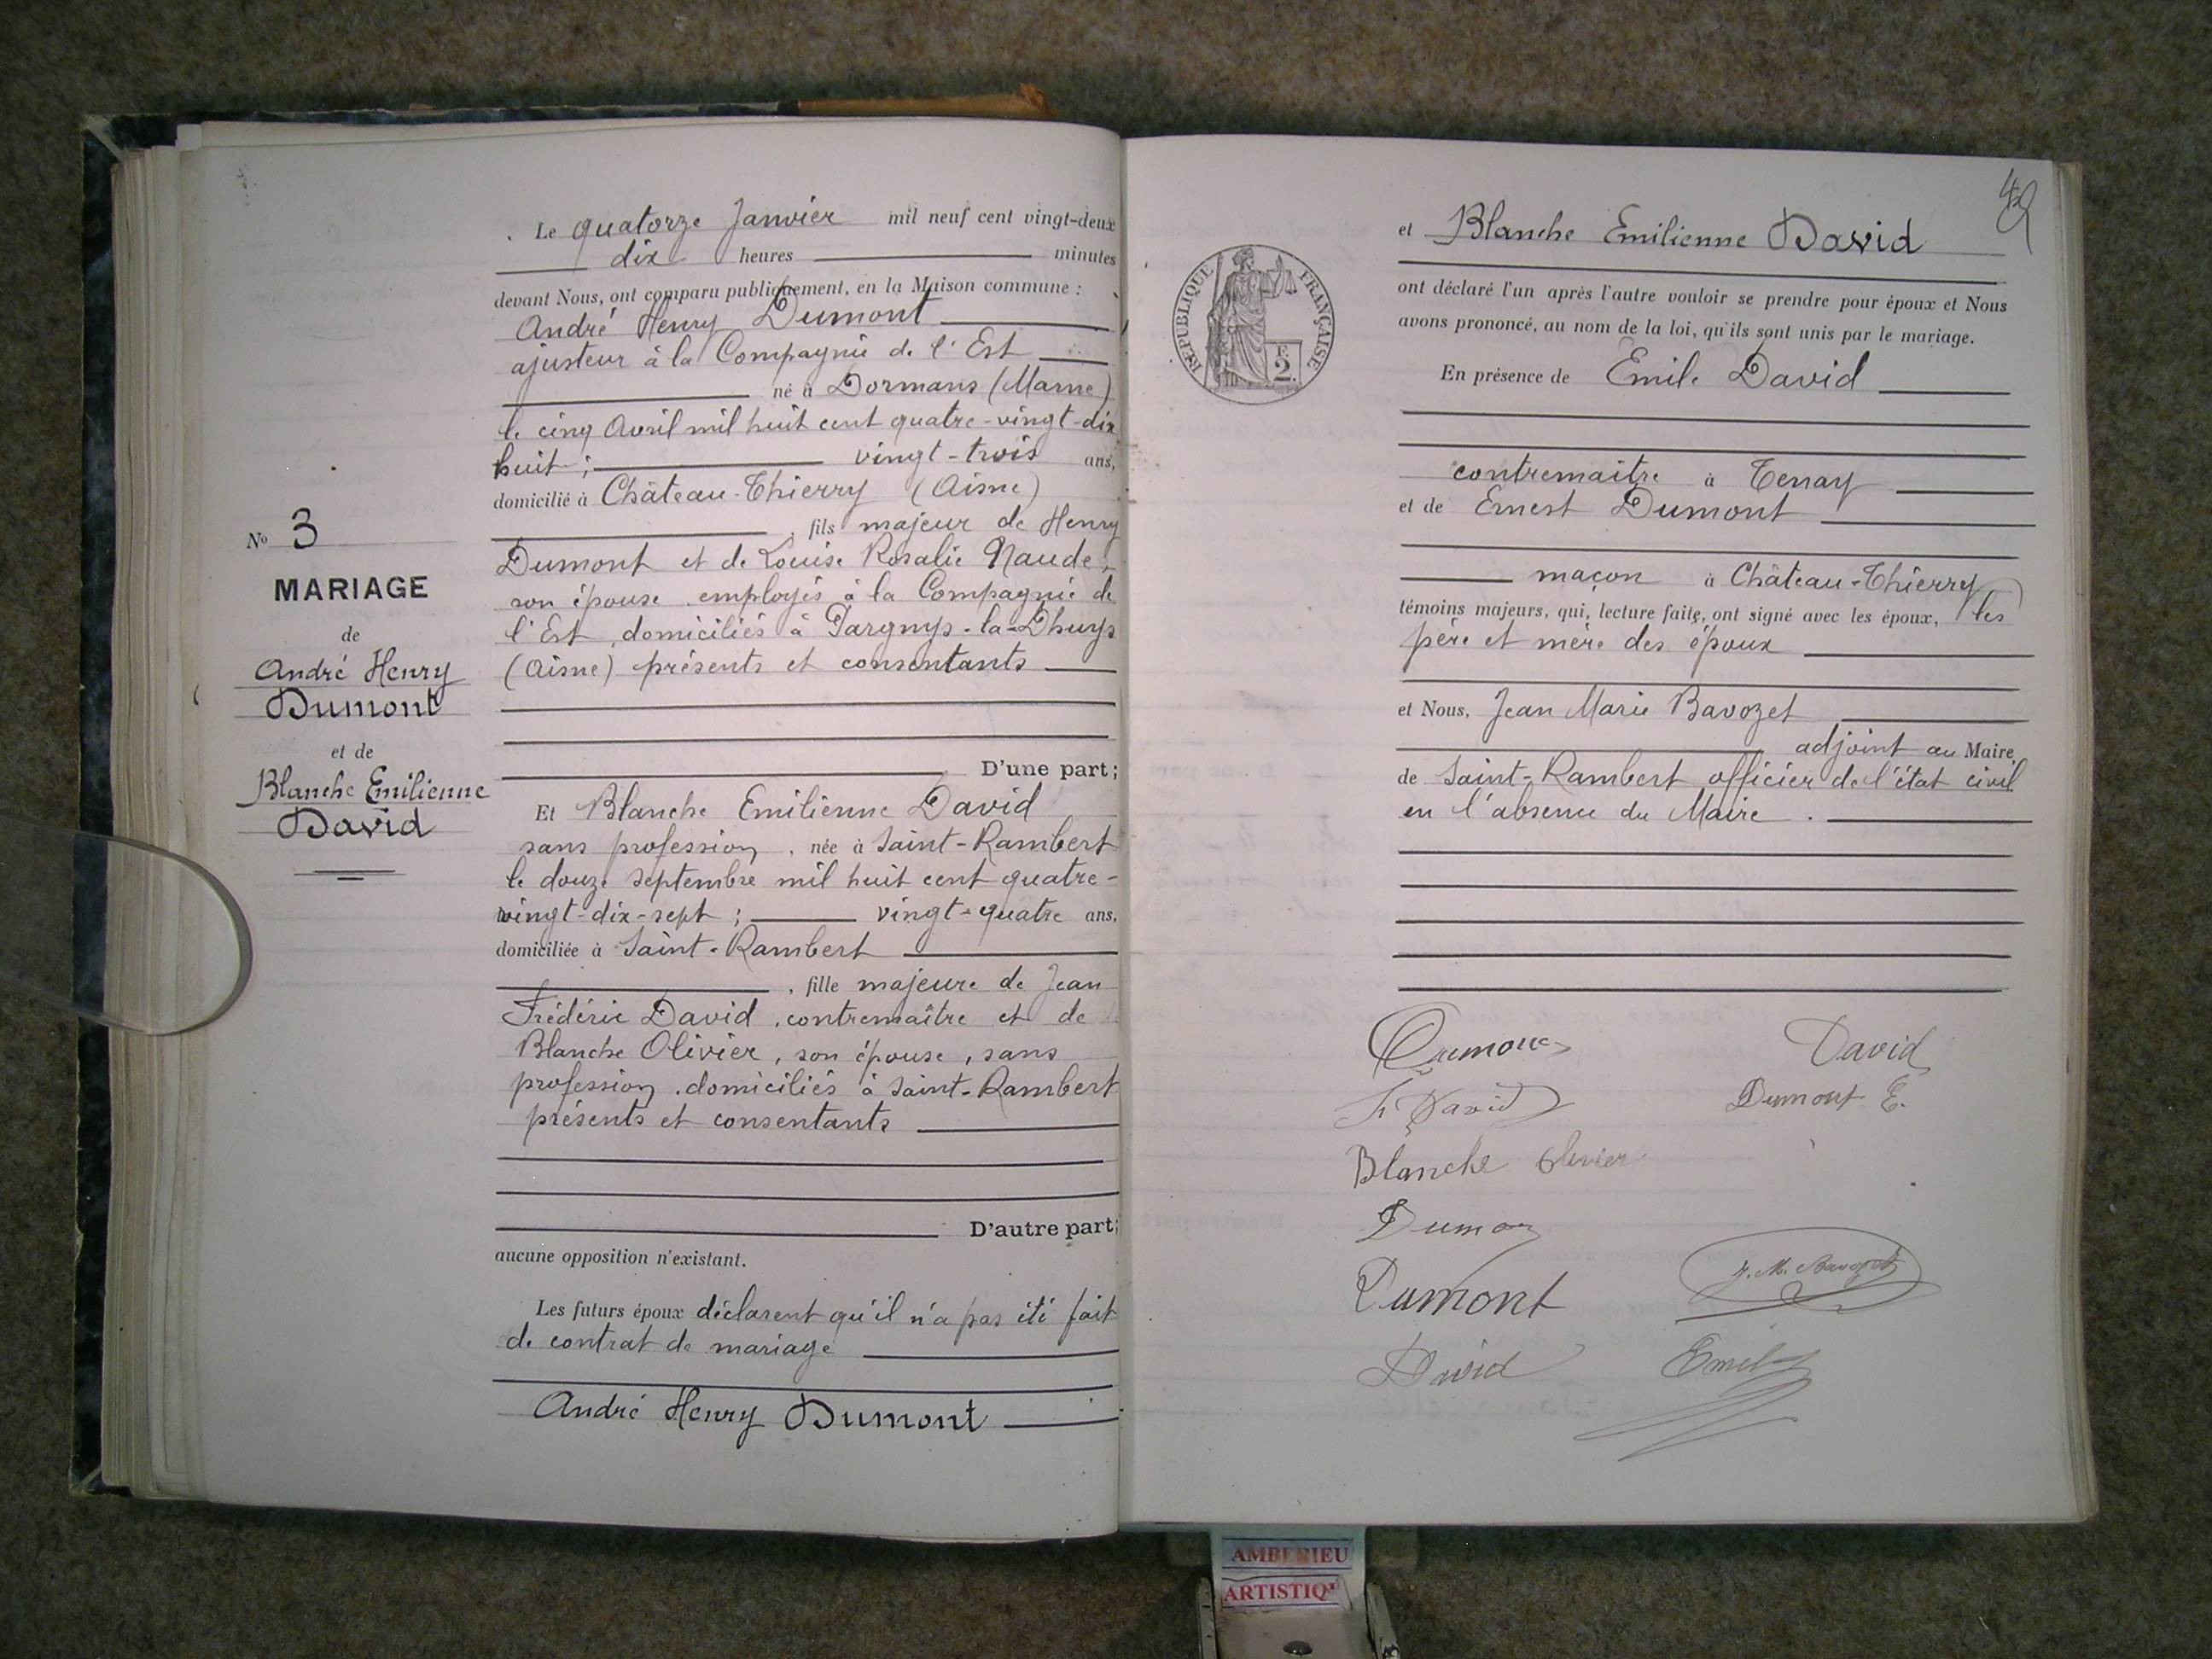 N° 3
MARIAGE
de
André Henry
Dumont
et de
Blanche Emilienne
David
Le quatorze Janvier mil neuf cent vingt-deux
dix heures minutes
devant Nous, ont comparu publiquement, en la Maison commune :
André Henry Dumont
ajusteur à la Compagnie de l'Est
né à Dormans (Marne)
le cinq Avril mil huit cent quatre-vingt-dix
huit ; vingt-trois ans,
domicilié à Château-Thierry (Aisne)
, fils majeur de Henry
Dumont et de Louise Rosalie Naude,
son épouse employés à la Compagnie de
l'Est, domiciliés à Pargnys-la-Dhuys
(Aisne) présents et consentants
D'une part ;
Et Blanche Emilienne David
sans profession, née à Saint-Rambert
le douze septembre mil huit cent quatre-
vingt-dix-sept ; vingt-quatre ans,
domiciliée à Saint-Rambert
, fille majeure de Jean
Frédéric David, contremaître et de
Blanche Olivier, son épouse, sans
profession, domiciliés à Saint-Rambert
présents et consentants
D'autre part ;
aucune opposition n'existant.
Les futurs époux déclarent qu'il n'a pas été fait
de contrat de mariage
André Henry Dumont
et Blanche Emilienne David
ont déclaré l'un après l'autre vouloir se prendre pour époux et Nous
avons prononcé, au nom de la loi, qu'ils sont unis par le mariage.
REPUBLIQUE FRANÇAISE
F. 2.
En présence de Emile David
contremaitre à Tenay
et de Ernest Dumont
maçon à Château-Thierry
témoins majeurs, qui, lecture faite, ont signé avec les époux, les
père et mère des époux
et Nous, Jean Marie Bavozet
adjoint au Maire
de Saint-Rambert officier de l'état civil
en l'absence du Maire.
David
David
Dumont E.
Blanche Olivier
Dumont
J. M. Bavozet
David Emile
AMBERIEU
ARTISTIQ